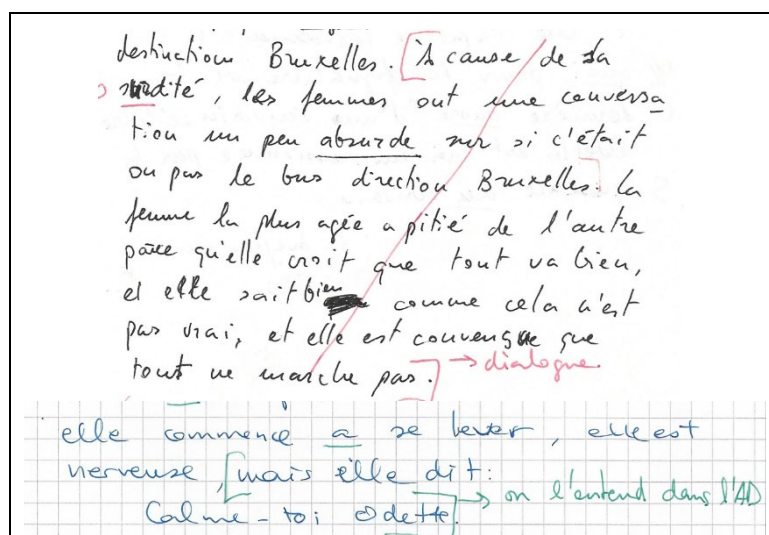 destination Bruxelles. [À cause de sa
surdité, les femmes ont une conversa
tion un peu absurde sur si c'était
ou pas le bus direction Bruxelles. La
femme la plus agée a pitié de l'autre
parce qu'elle croit que tout va bien,
et elle sait bien comme cela n'est
pas vrai, et elle est convenque que
tout ne marche pas.] → dialogue.
elle commence a se lever, elle est
nerveuse, [mais elle dit:
Calme-toi Odette.] → on l'entend dans l'AD